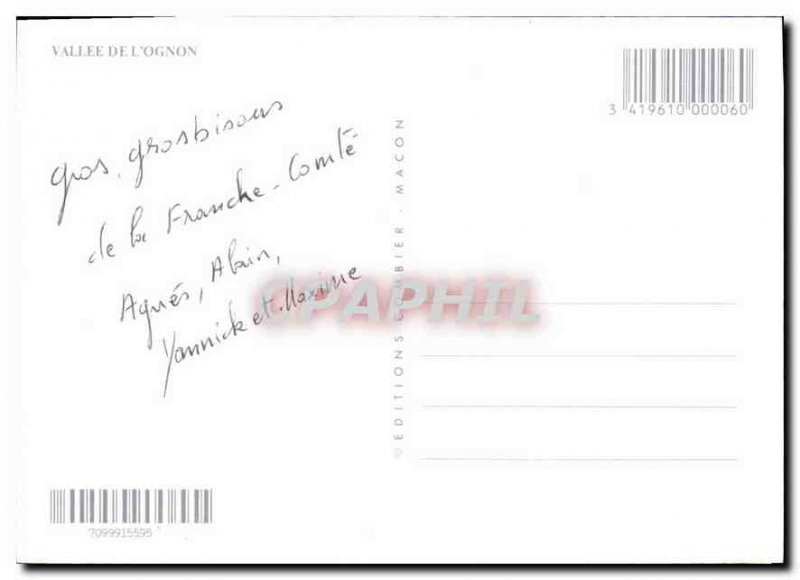 VALLEE DE L'OGNON
3 419610 000060
gros, grosbisous
de la Franche-Comté
Agnés, Alain,
Yannick et Maxime
CPAPHIL
© EDITIONS COMBIER - MACON
7099915595